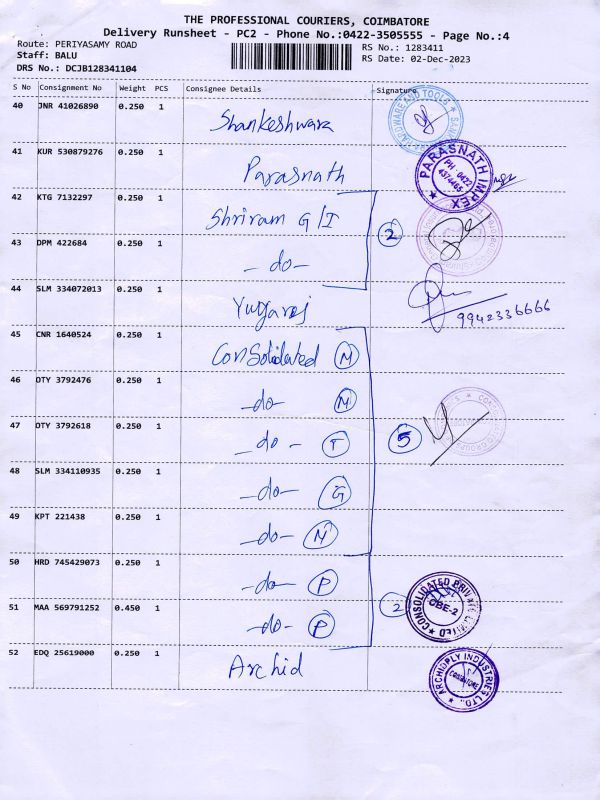 THE PROFESSIONAL COURIERS, COIMBATORE
Delivery Runsheet - PC2 - Phone No.:0422-3505555 - Page No.:4
Route: PERIYASAMY ROAD RS No.: 1283411
Staff: BALU RS Date: 02-Dec-2023
DRS No.: DCJB128341104
S No Consignment No Weight PCS Consignee Details Signature
40 JNR 41026890 0.250 1 Shankeshwara HARDWARE AND TOOLS
41 KUR 530879276 0.250 1 Parasnath PARASNATH IMPEX PH - 0422 4374465
42 KTG 7132297 0.250 1 Shriram G/I
43 DPM 422684 0.250 1 -do- 2
44 SLM 334072013 0.250 1 Yugaraj 9942336666
45 CNR 1640524 0.250 1 Consolidated M
46 OTY 3792476 0.250 1 -do- M
47 OTY 3792618 0.250 1 -do- T 5
48 SLM 334110935 0.250 1 -do- G
49 KPT 221438 0.250 1 -do- M
50 HRD 745429073 0.250 1 -do- P
51 MAA 569791252 0.450 1 -do- P 2 CONSOLIDATED CBE-2
52 EDQ 25619000 0.250 1 Archid ARCHIDPLY INDUSTRIES LTD., COIMBATORE